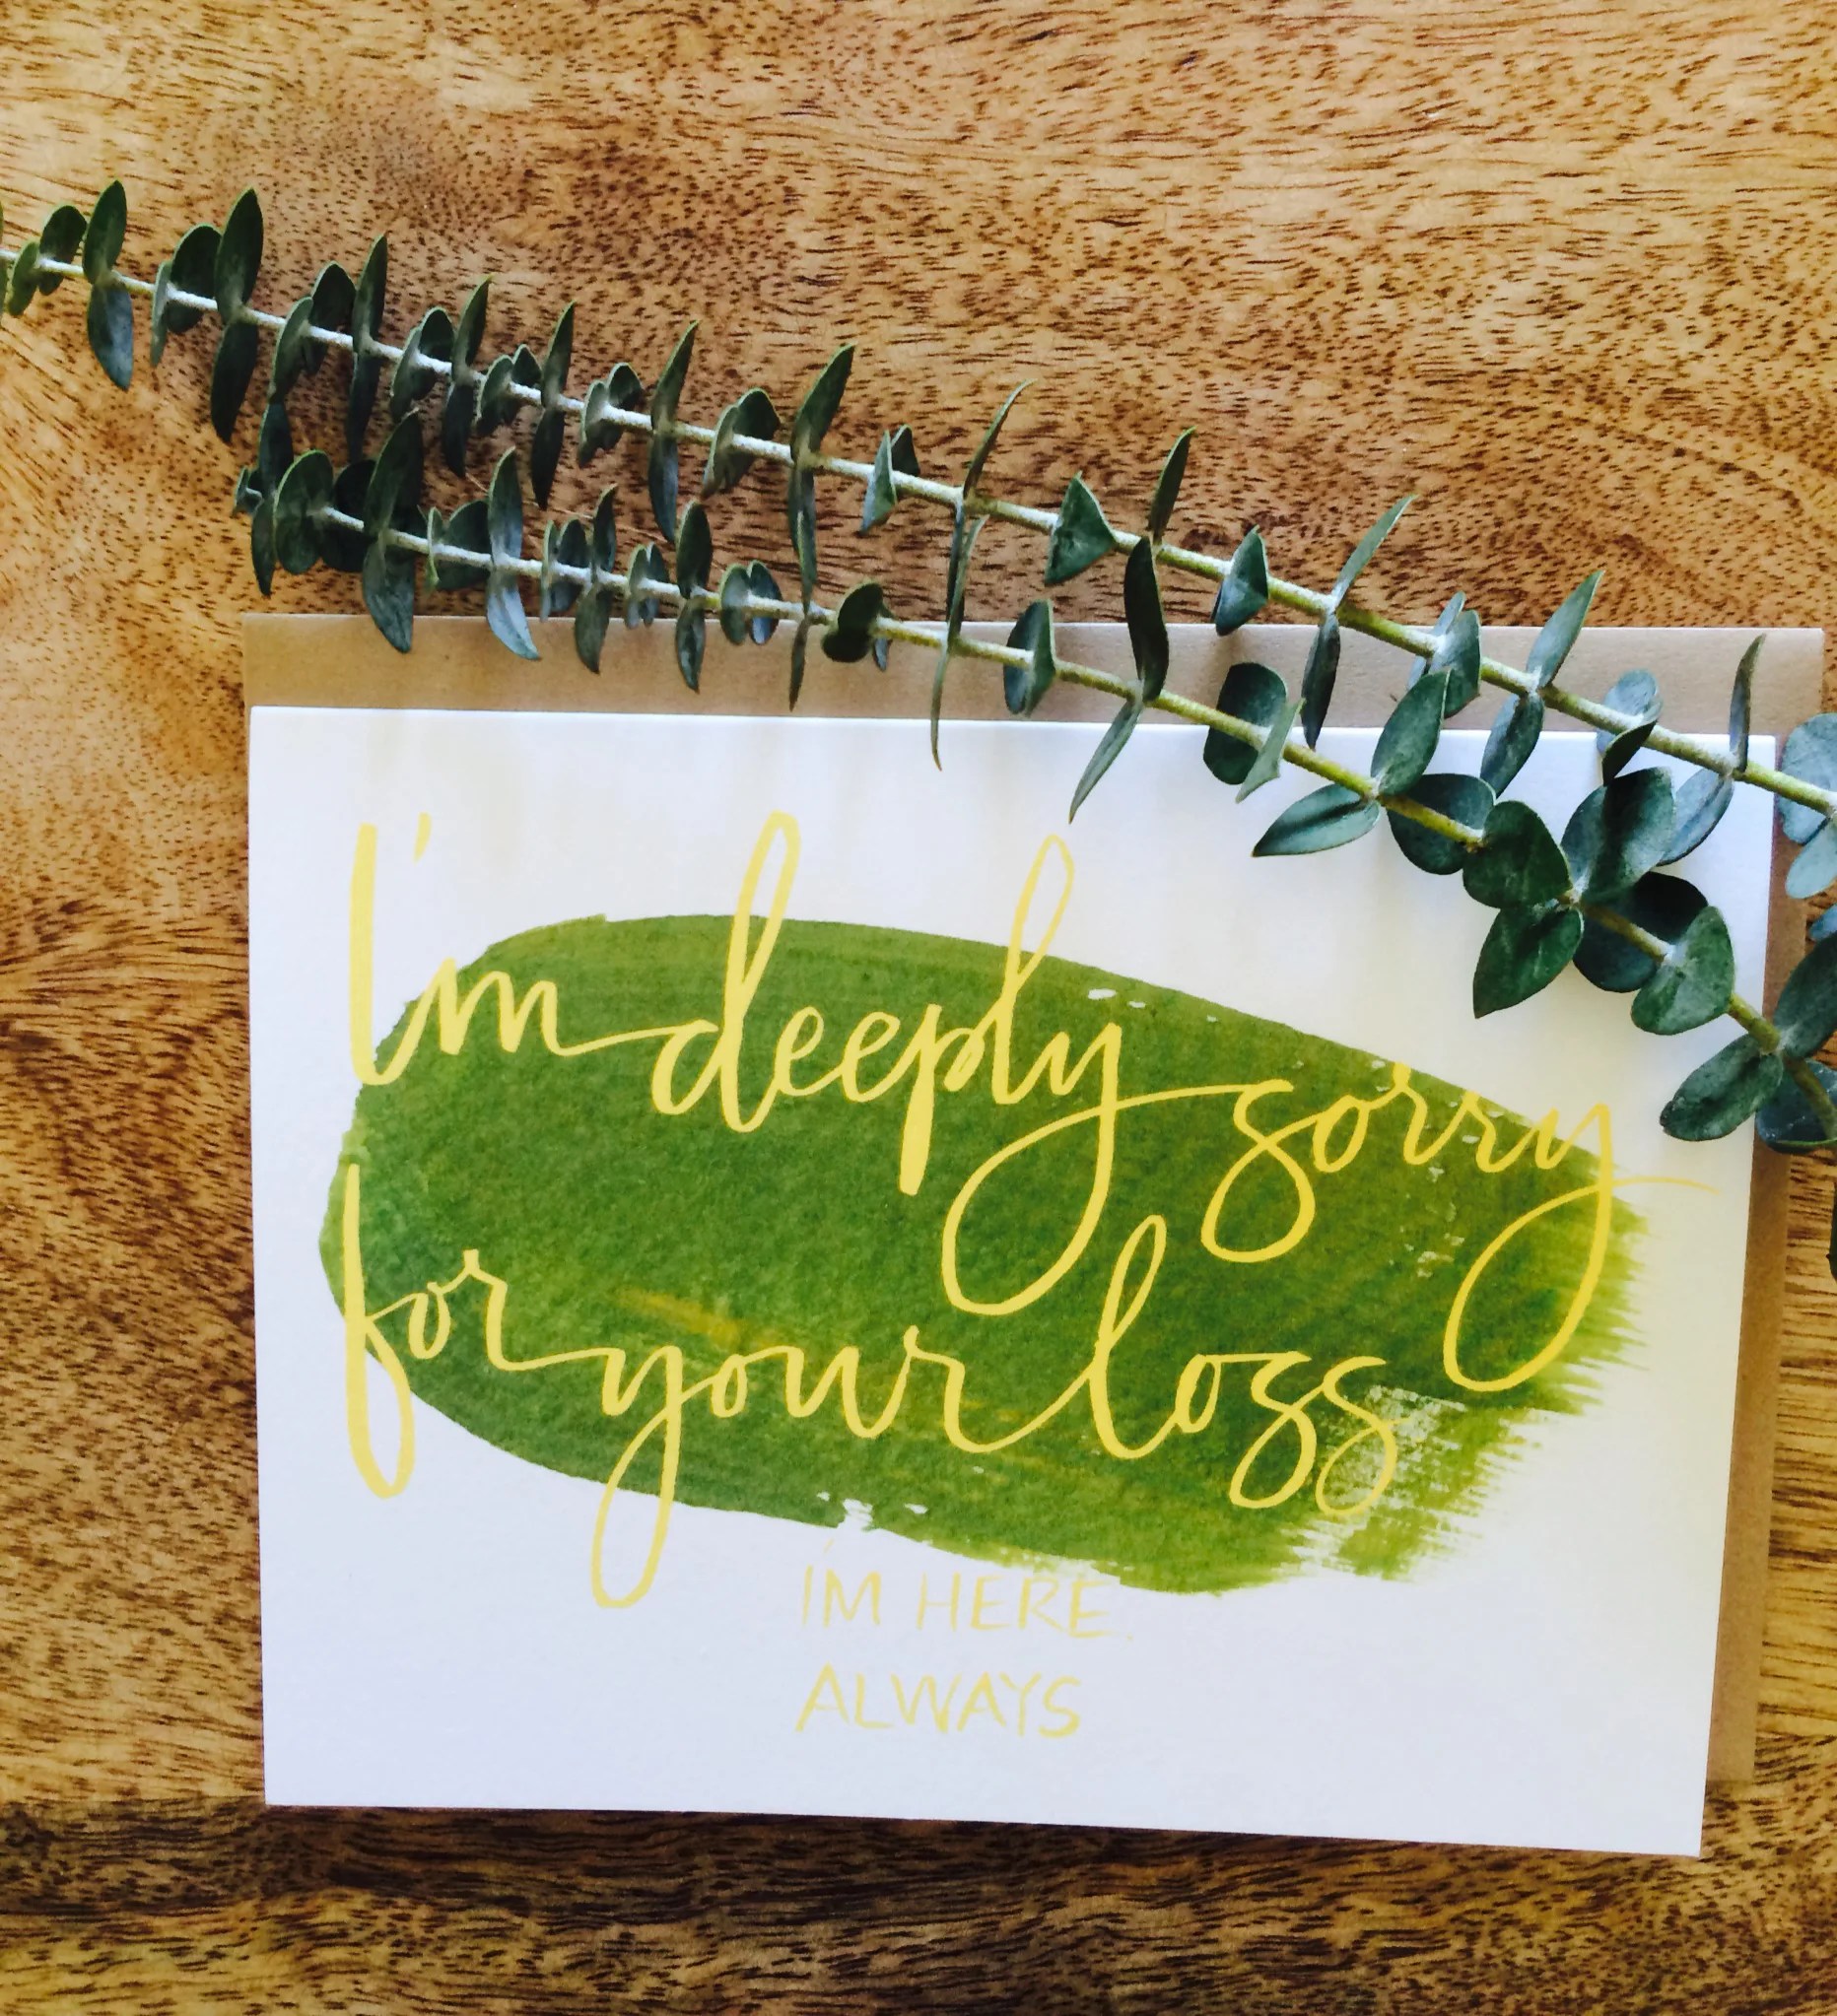 I'm deeply sorry
for your loss
I'M HERE
ALWAYS